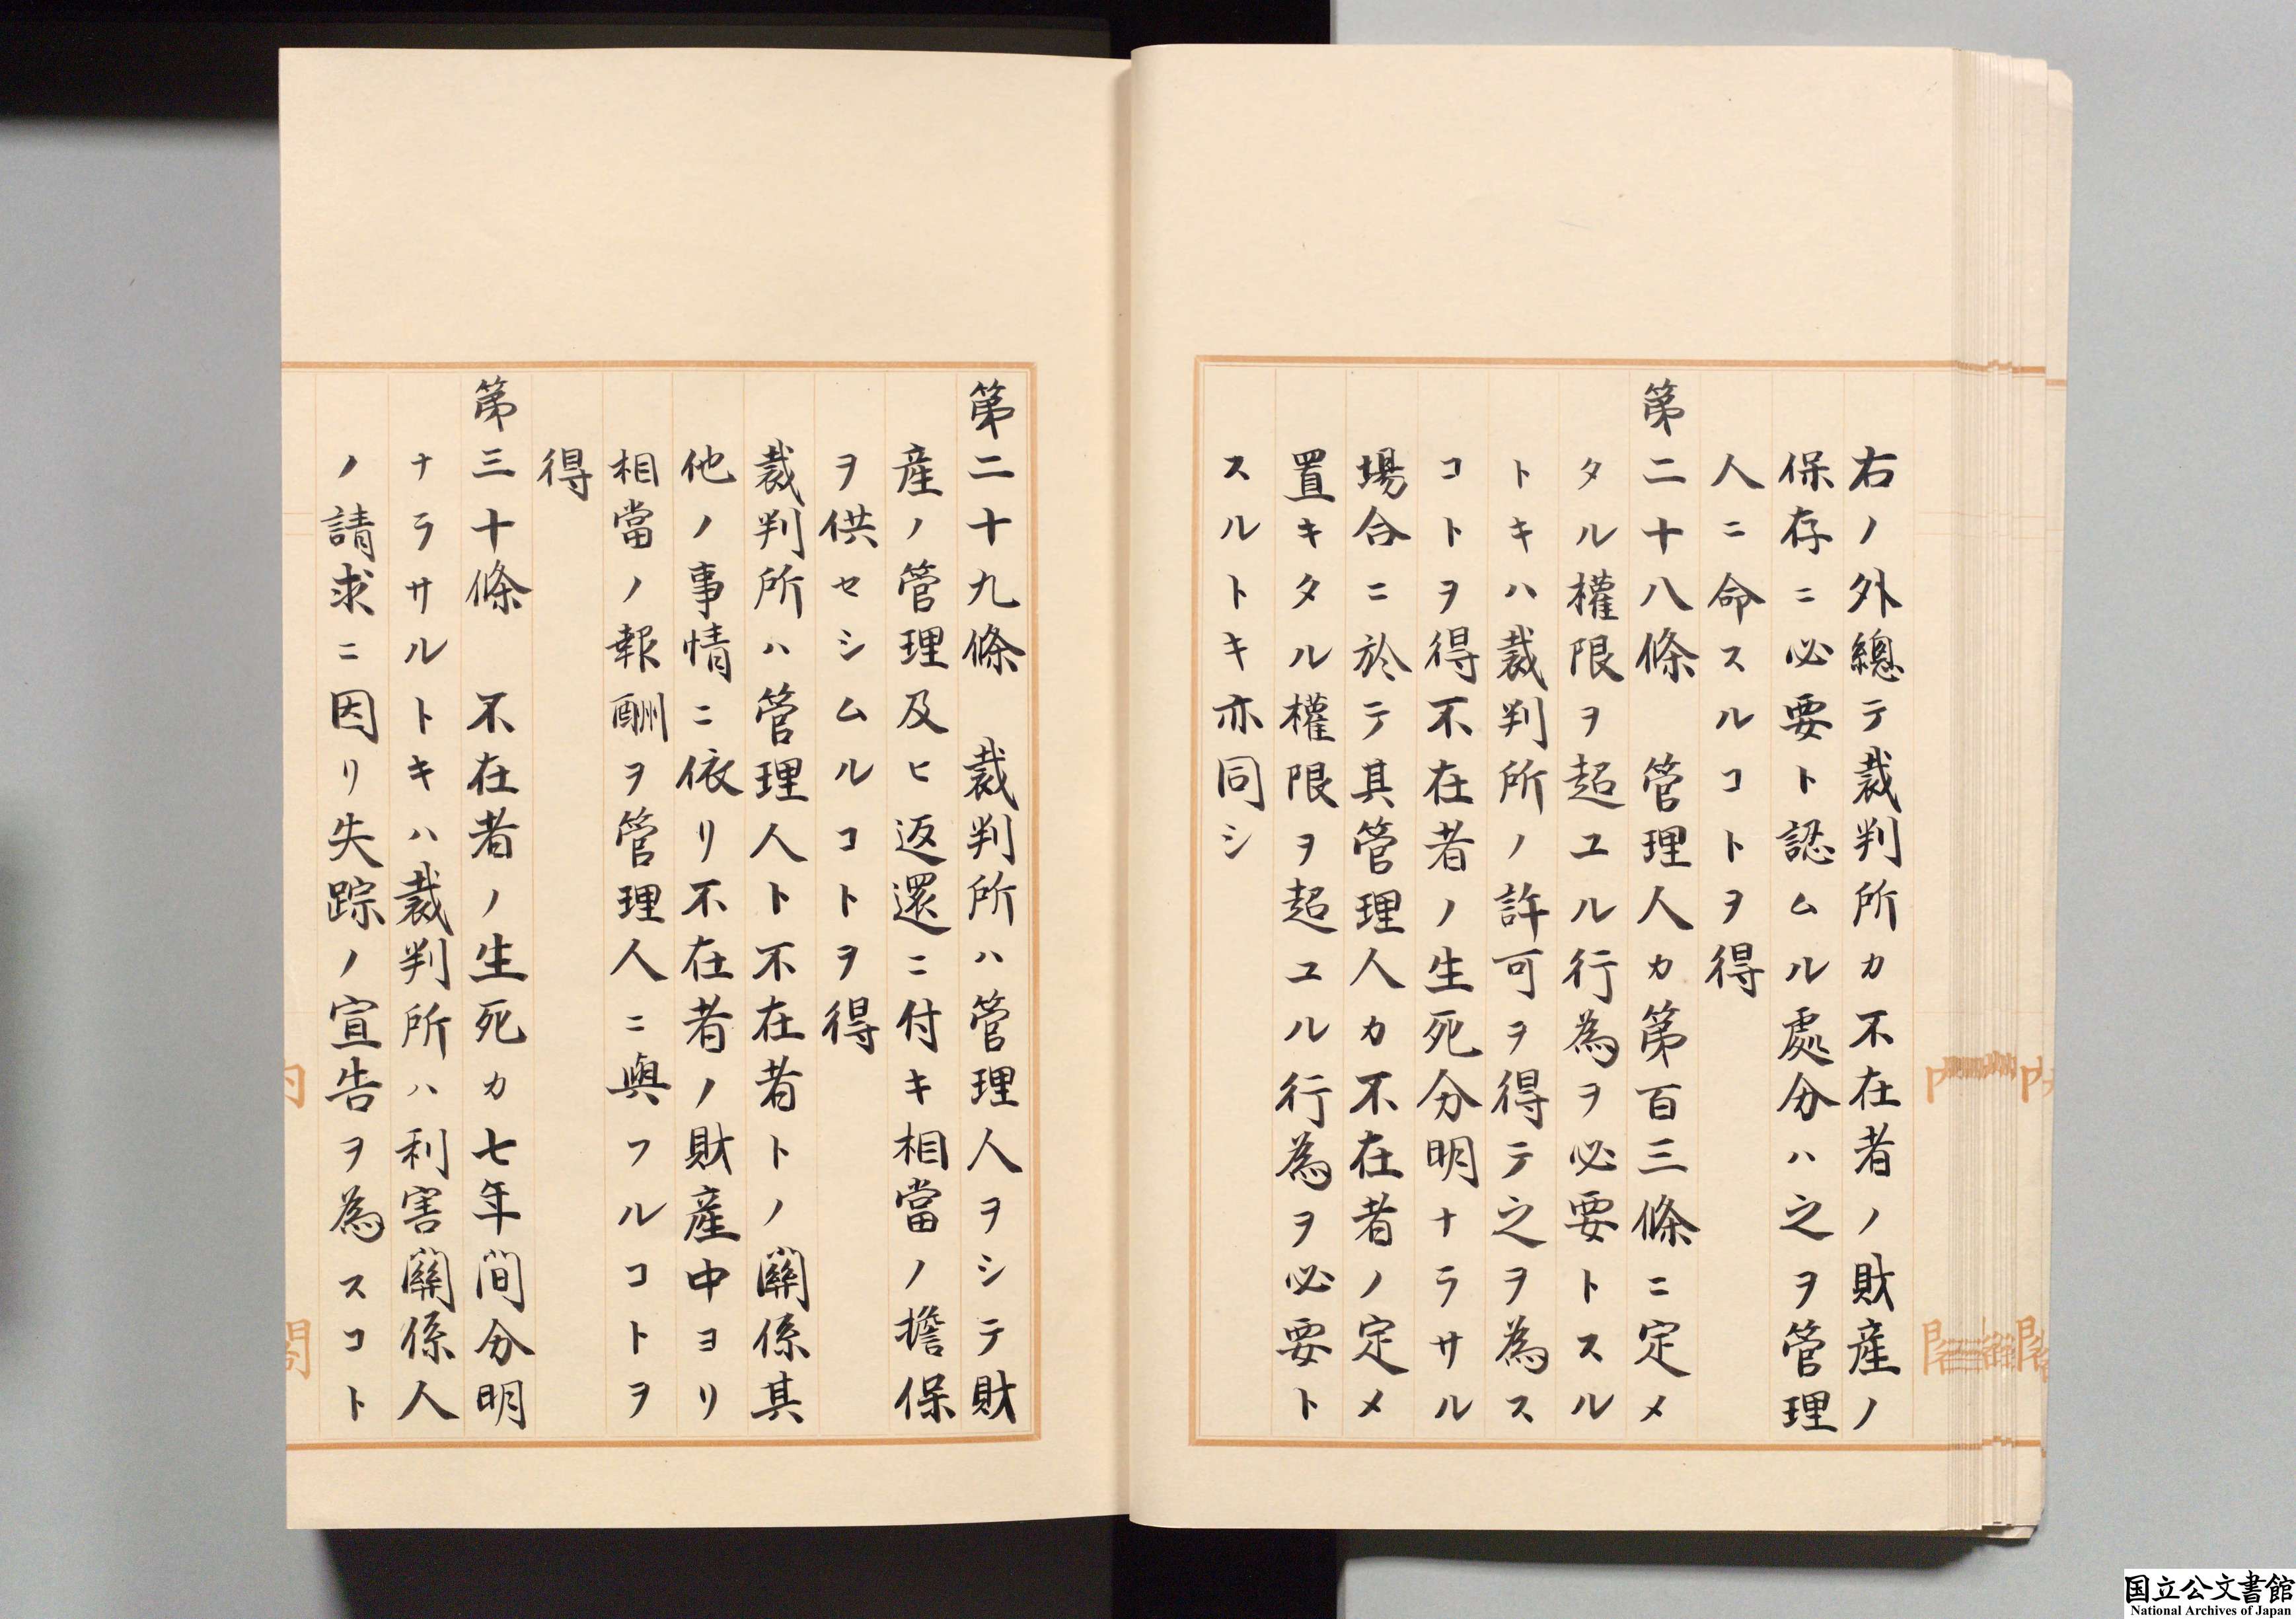 右ノ外總テ裁判所カ不在者ノ財産ノ
保存ニ必要ト認ムル處分ハ之ヲ管理
人ニ命スルコトヲ得
第二十八條　管理人カ第百三條ニ定メ
タル權限ヲ超ユル行為ヲ必要トスル
トキハ裁判所ノ許可ヲ得テ之ヲ為ス
コトヲ得不在者ノ生死分明ナラサル
場合ニ於テ其管理人カ不在者ノ定メ
置キタル權限ヲ超ユル行為ヲ必要ト
スルトキ亦同シ
第二十九條　裁判所ハ管理人ヲシテ財
産ノ管理及ヒ返還ニ付キ相當ノ擔保
ヲ供セシムルコトヲ得
裁判所ハ管理人ト不在者トノ關係其
他ノ事情ニ依リ不在者ノ財産中ヨリ
相當ノ報酬ヲ管理人ニ與フルコトヲ
得
第三十條　不在者ノ生死カ七年間分明
ナラサルトキハ裁判所ハ利害關係人
ノ請求ニ因リ失踪ノ宣告ヲ為スコト
国立公文書館
National Archives of Japan